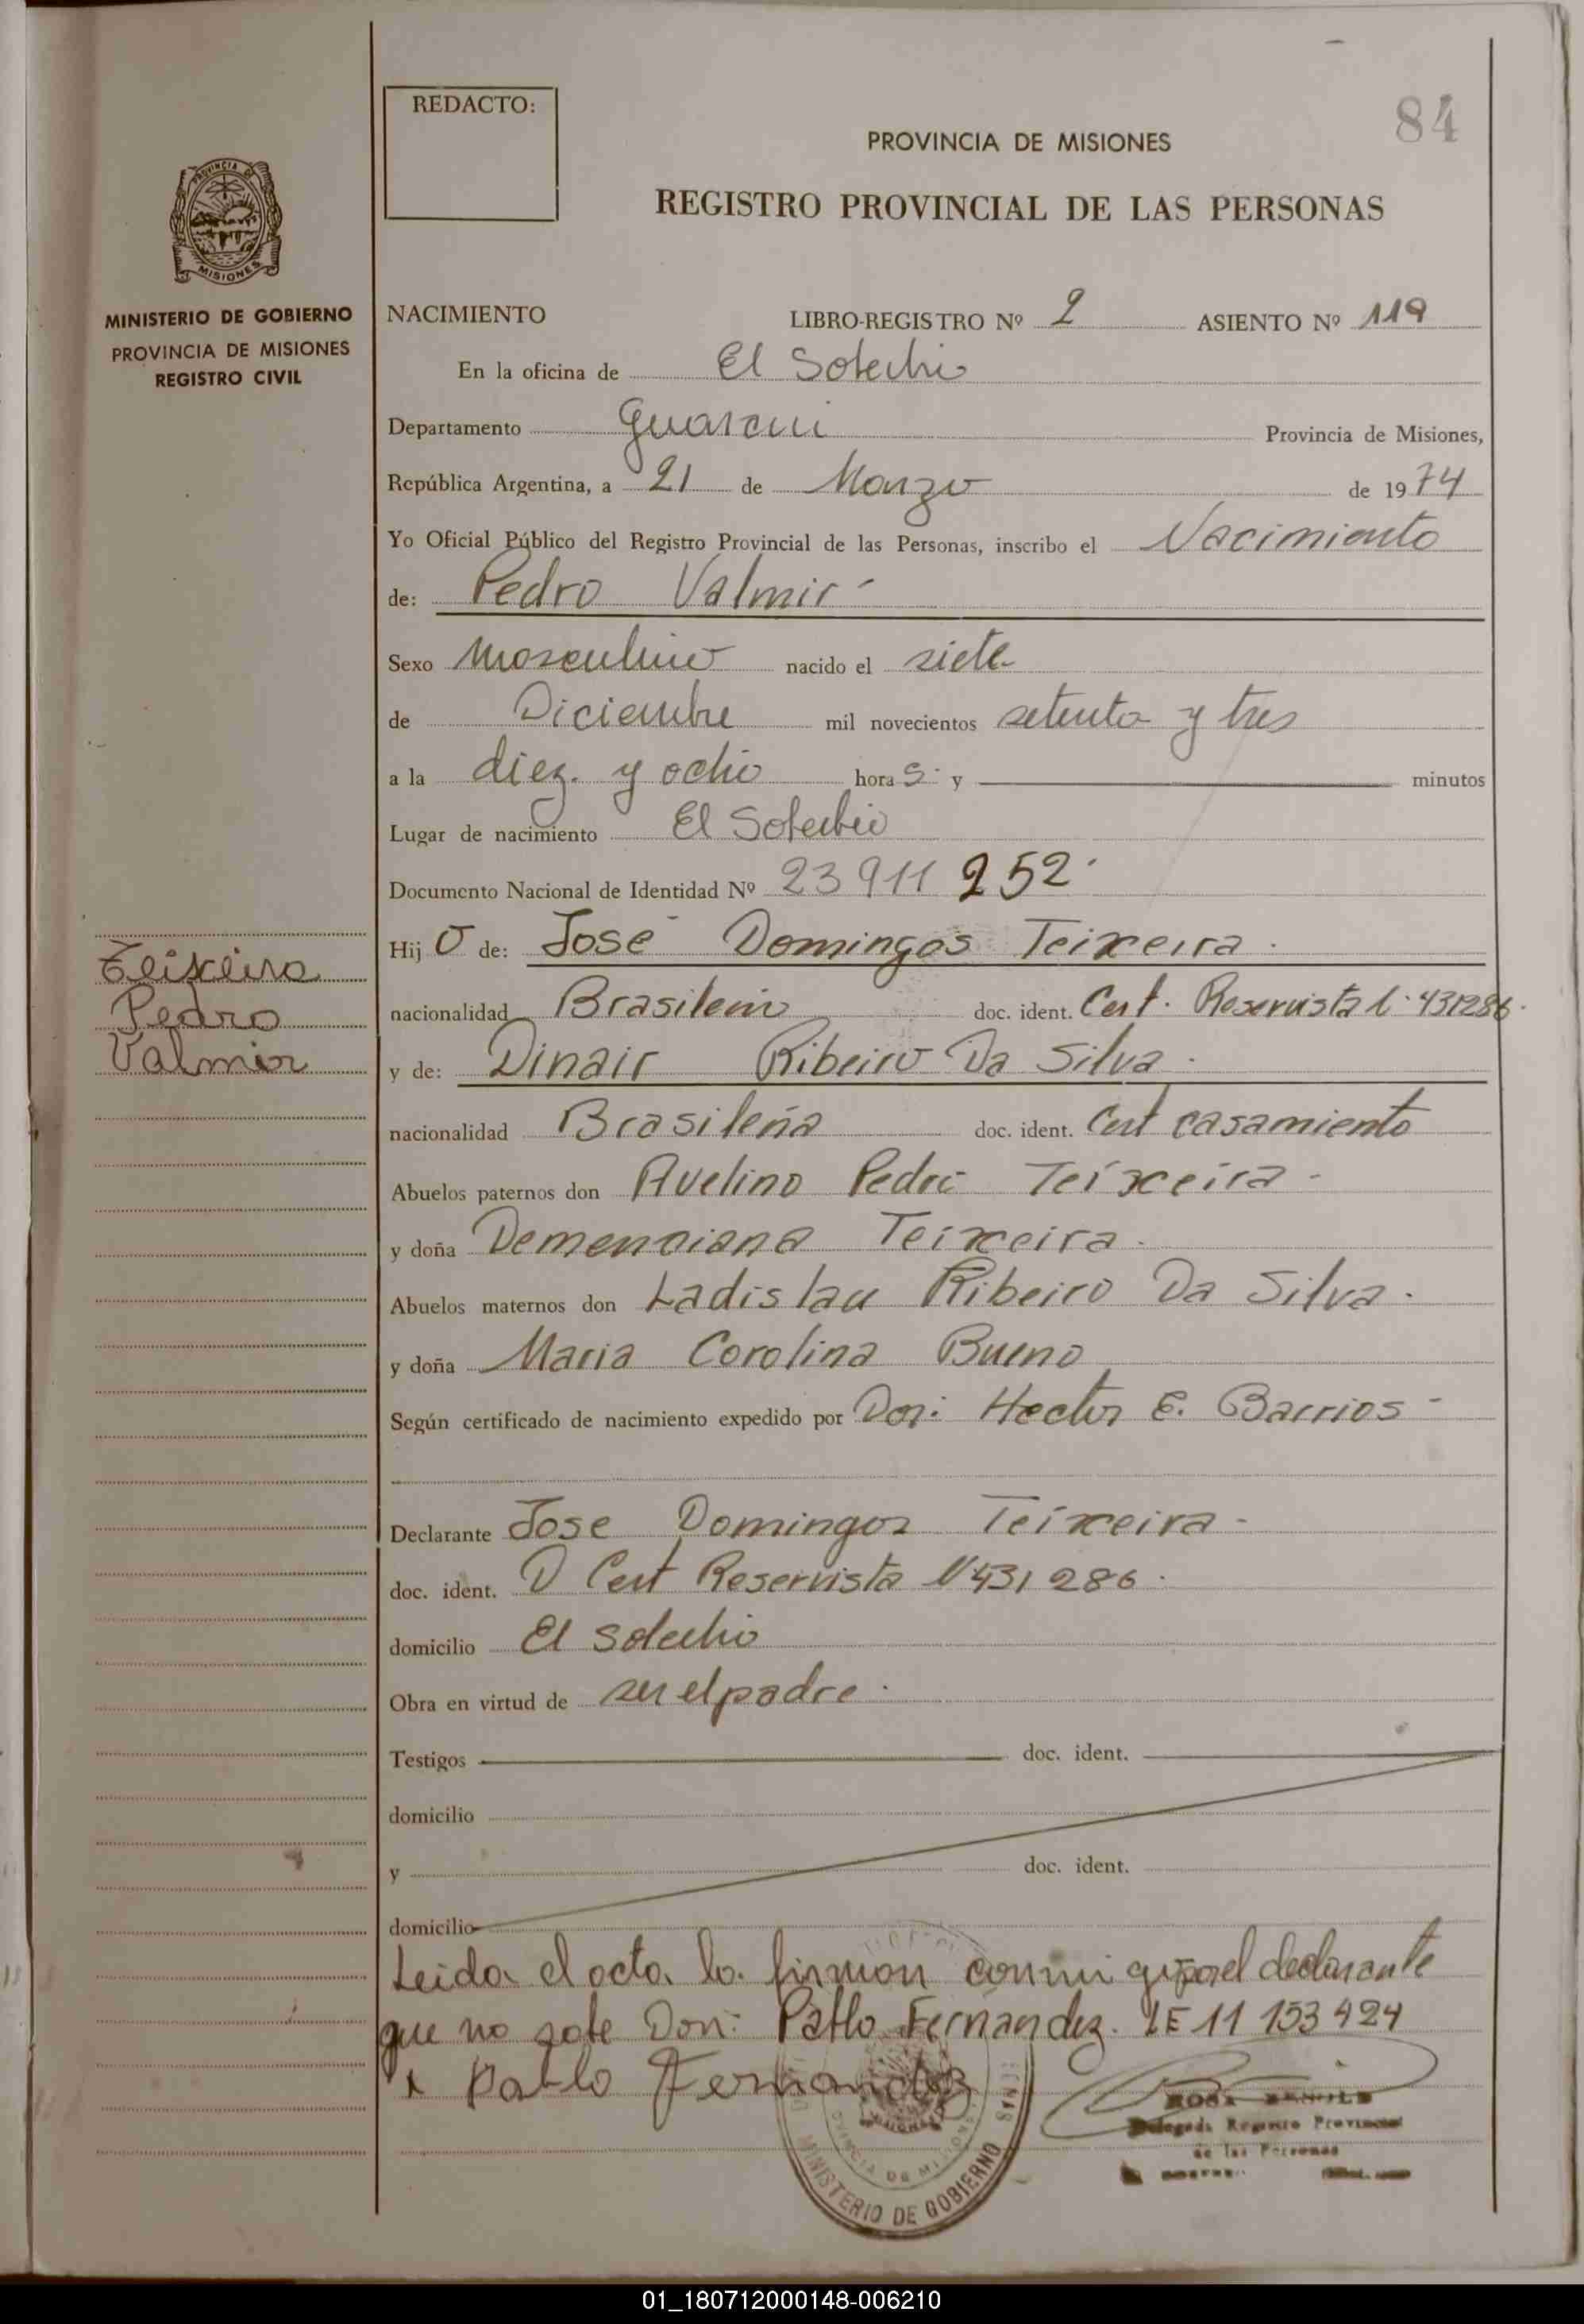 84
REDACTO:
PROVINCIA DE MISIONES
REGISTRO PROVINCIAL DE LAS PERSONAS
PROVINCIA DE
MISIONES
MINISTERIO DE GOBIERNO
PROVINCIA DE MISIONES
REGISTRO CIVIL
NACIMIENTO LIBRO-REGISTRO Nº 2 ASIENTO Nº 119
En la oficina de El Soberbio
Departamento Guarani Provincia de Misiones,
República Argentina, a 21 de Marzo de 1974
Yo Oficial Público del Registro Provincial de las Personas, inscribo el Nacimiento
de: Pedro Valmir
Sexo Masculino nacido el siete
de Diciembre mil novecientos setenta y tres
a la diez y ocho hora s y minutos
Lugar de nacimiento El Soberbio
Documento Nacional de Identidad Nº 23 911 252
Hij o de: José Domingos Teixeira
nacionalidad Brasileño doc. ident. Cert. Reservista 431286
y de: Dinair Ribeiro Da Silva
nacionalidad Brasileña doc. ident. Cert casamiento
Abuelos paternos don Avelino Pedro Teixceira
y doña Demenciana Teixceira
Abuelos maternos don Ladislau Ribeiro Da Silva.
y doña Maria Corolina Bueno
Según certificado de nacimiento expedido por Don: Hector E. Barrios
Declarante Jose Domingos Teixceira
doc. ident. D Cert Reservista Nº 431 286
domicilio El Soberbio
Obra en virtud de ser el padre.
Testigos doc. ident.
domicilio
y doc. ident.
domicilio
Leida el acta la firman conmigo por el declarante
que no sabe Don: Pablo Fernandez. LE 11 153 424
x Pablo Fernandez
Teixeira
Pedro
Valmir
MINISTERIO DE GOBIERNO
PROVINCIA DE MISIONES
ROSA
Delegada Registro Provincial
de las Personas
01_180712000148-006210